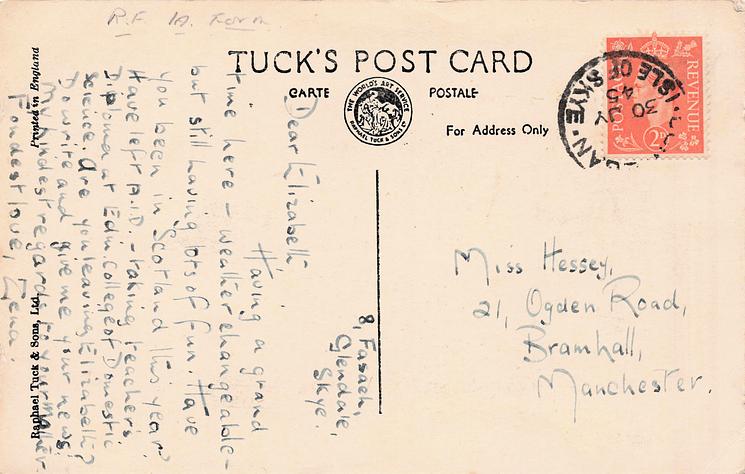 R.F. 1A. Form
TUCK'S POST CARD
CARTE POSTALE
THE WORLD'S ART SERVICE
RAPHAEL TUCK & SONS LTD
For Address Only
REVENUE
POSTAGE
2D
GAN
ISLE OF SKYE
30 JY
45
8, Fasach,
Glendale,
Skye.
Dear Elizabeth,
Having a grand
time here - weather changeable -
but still having lots of fun. Have
you been in Scotland this year?
Have left A.I.D. - taking teachers
Diploma at Edin. College of Domestic
Science. Are you leaving Elizabeth?
Do write and give me your news.
My kindest regards to your mother
Fondest love, Zena
Miss Hessey,
21, Ogden Road,
Bramhall,
Manchester.
Raphael Tuck & Sons, Ltd. Printed in England